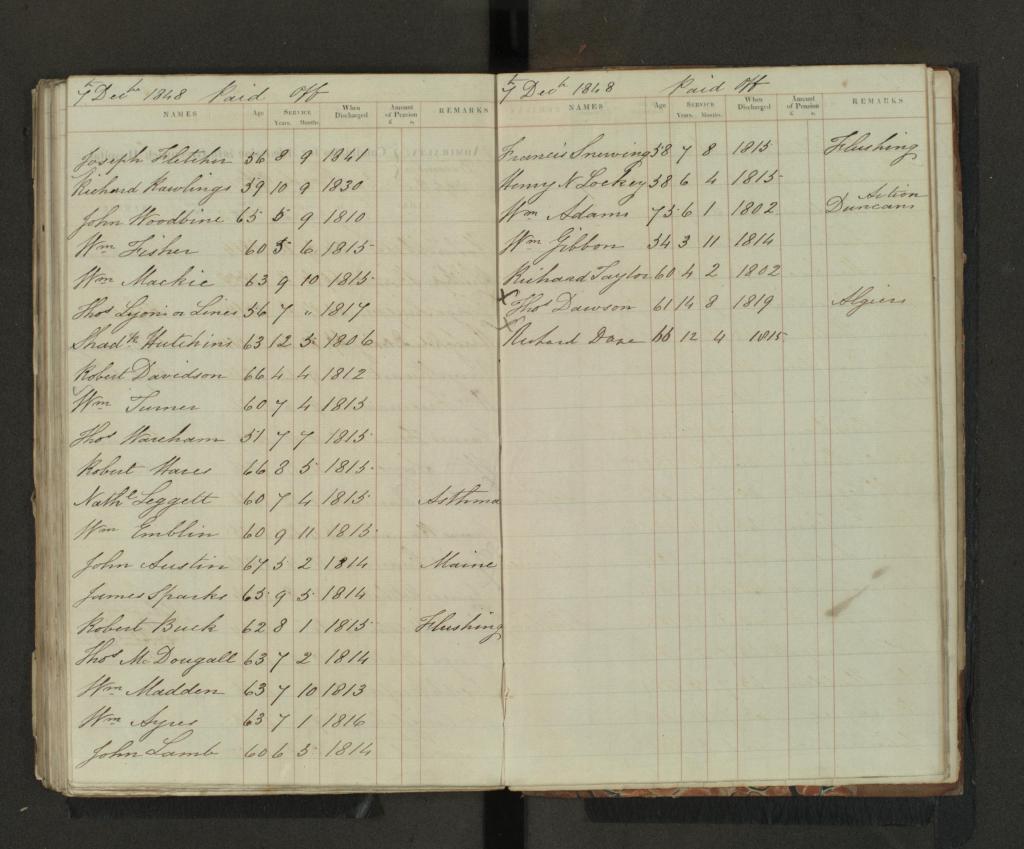 7th Decbr 1848 Paid Off
NAMES Age SERVICE Years. Months. When Discharged Amount of Pension £ s. REMARKS
Joseph Fletcher 56 8 9 1841
Richard Rawlings 59 10 9 1830
John Woodbine 65 5 9 1810
Wm Fisher 60 5 6 1815
Wm Mackie 63 9 10 1815
Thos Lyons or Lines 56 7 " 1817
Shadk Hutchins 63 12 5 1806
Robert Davidson 66 4 4 1812
Wm Turner 60 7 4 1815
Thos Wareham 51 7 7 1815
Robert Wares 66 8 5 1815
Nathl Leggett 60 7 4 1815 Asthma
Wm Emblin 60 9 11 1815
John Austin 67 5 2 1814 Maine
James Sparks 65 9 5 1814
Robert Buck 62 8 1 1815 Flushing
Thos McDougall 63 7 2 1814
Wm Madden 63 7 10 1813
Wm Ayres 63 7 1 1816
John Lamb 60 6 5 1814
7th Decbr 1848 Paid Off
NAMES Age SERVICE Years. Months. When Discharged Amount of Pension £ s. REMARKS
Francis Snewing 58 7 8 1815 Flushing
Henry N Lockey 58 6 4 1815
Wm Adams 75 6 1 1802 Duncans Action
Wm Gibbon 54 3 11 1814
Richard Taylor 60 4 2 1802
Thos Dawson 61 14 8 1819 Algiers
Richard Dare 66 12 4 1815